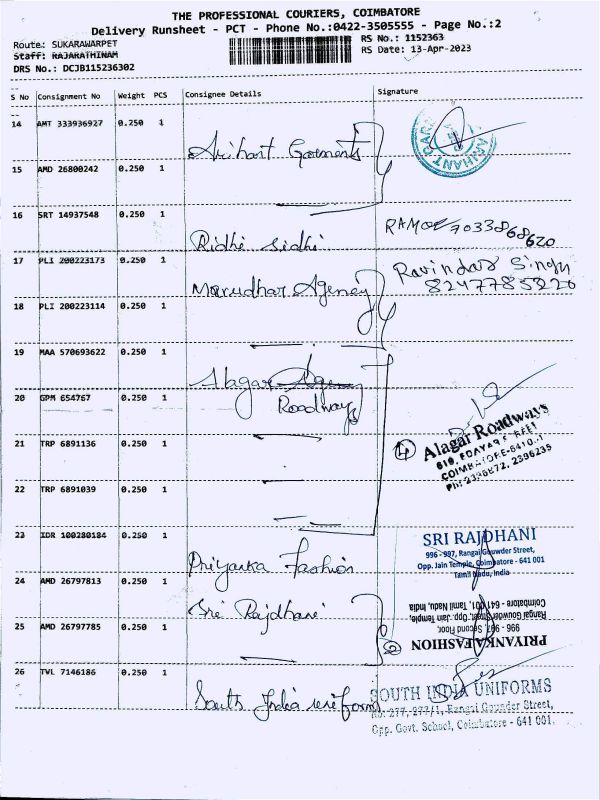 THE PROFESSIONAL COURIERS, COIMBATORE
Delivery Runsheet - PCT - Phone No.:0422-3505555 - Page No.:2
Route: SUKARAWARPET
RS No.: 1152363
Staff: RAJARATHINAM
RS Date: 13-Apr-2023
DRS No.: DCJB115236302
S No Consignment No Weight PCS Consignee Details Signature
14 AMT 333936927 0.250 1 Arihant Garments
ARIHANT GAR
15 AMD 26800242 0.250 1
16 SRT 14937548 0.250 1 Ridhi Sidhi
7033868620
17 PLI 200223173 0.250 1 Marudhar Agency
Ravindar Singh
8247785220
18 PLI 200223114 0.250 1
19 MAA 570693622 0.250 1 Alagar Agency
Roadways
20 GPM 654767 0.250 1
21 TRP 6891136 0.250 1
4 Alagar Roadways
COIMBATORE-6410.1
Ph: 2396872, 2396235
22 TRP 6891039 0.250 1
23 IDR 100280184 0.250 1 Priyanka Fashion
SRI RAJDHANI
996 - 997, Rangai Gouwder Street,
Opp. Jain Temple, Coimbatore - 641 001
Tamil Nadu, India
24 AMD 26797813 0.250 1 Sri Rajdhani
25 AMD 26797785 0.250 1
2
PRIYANKA FASHION
996 - 997, Second Floor,
Rangai Gowder Street, Opp. Jain Temple,
Coimbatore - 641 001, Tamil Nadu, India
26 TVL 7146186 0.250 1 South India uniform
SOUTH INDIA UNIFORMS
No: 277, 277/1, Rangai Gounder Street,
Opp. Govt. School, Coimbatore - 641 001.